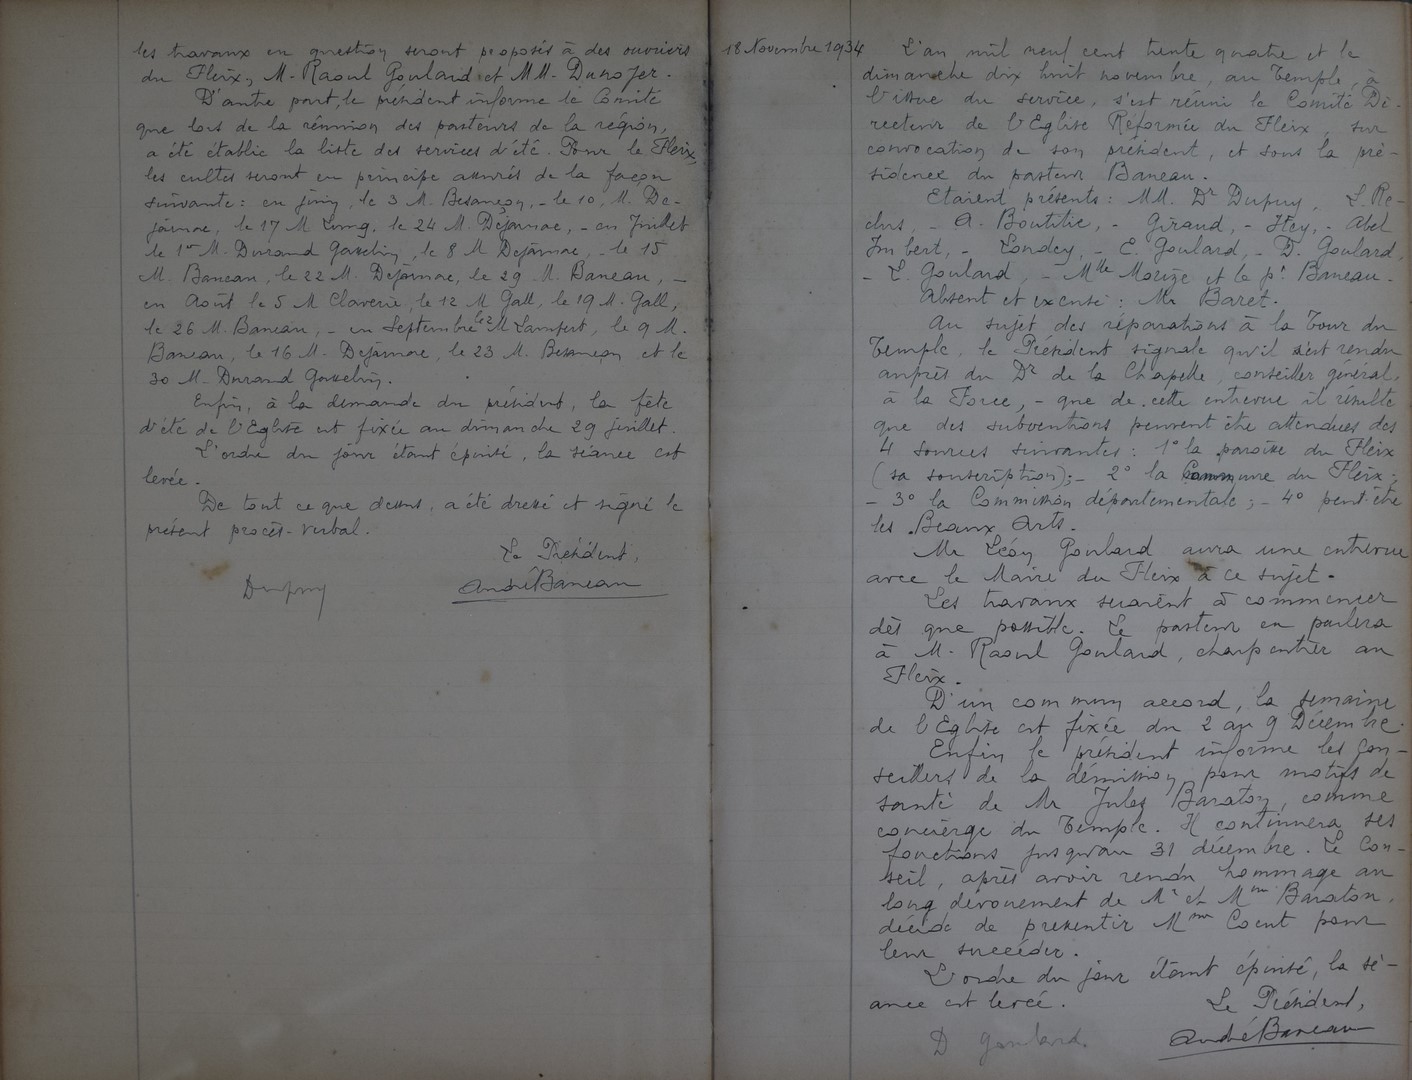 les travaux en question seront proposés à des ouvriers
du Fleix, M. Raoul Goulard et MM. Dunoyer.
D'autre part, le président informe le Comité
que lors de la réunion des pasteurs de la région,
a été établie la liste des services d'été. Pour le Fleix,
les cultes seront en principe assurés de la façon
suivante : en juin, le 3 M. Besançon, - le 10, M. De-
jarnac, le 17 M. Lung, le 24 M. Dejarnac, - en Juillet
le 1er M. Durand Gasselin, le 8 M Dejarnac, - le 15
M. Baneau, le 22 M. Dejarnac, le 29 M. Baneau, -
en Août le 5 M Claverie, le 12 M Gall, le 19 M. Gall,
le 26 M. Baneau, - en Septembre le 2 M Lampert, le 9 M.
Baneau, le 16 M. Dejarnac, le 23 M. Besançon et le
30 M. Durand Gasselin.
Enfin, à la demande du président, la fête
d'été de l'Eglise est fixée au dimanche 29 juillet.
L'ordre du jour étant épuisé, la séance est
levée.
De tout ce que dessus, a été dressé et signé le
présent procès-verbal.
Le Président,
Dupuy André Baneau
18 Novembre 1934
L'an mil neuf cent trente quatre et le
dimanche dix huit novembre, au Temple, à
l'issue du service, s'est réuni le Comité Di-
recteur de l'Eglise Réformée du Fleix, sur
convocation de son président, et sous la pré-
sidence du pasteur Baneau.
Etaient présents : MM. Dr Dupuy, L. Re-
clus, - A. Boutilie, - Giraud, - Hey, - Abel
Imbert, - Londey, - E. Goulard, - D. Goulard,
- L. Goulard, - Mlle Morize et le pr. Baneau.
Absent et excusé : Mr Baret.
Au sujet des réparations à la Tour du
Temple, le Président signale qu'il s'est rendu
auprès du Dr de la Chapelle, conseiller général,
à la Force, - que de cette entrevue il résulte
que des subventions peuvent être attendues des
4 sources suivantes : 1° la paroisse du Fleix
(sa souscription) ; - 2° la Commune du Fleix ;
- 3° la Commission départementale ; - 4° peut-être
les Beaux Arts.
Mr Léon Goulard aura une entrevue
avec le Maire du Fleix à ce sujet.
Les travaux seraient à commencer
dès que possible. Le pasteur en parlera
à M. Raoul Goulard, charpentier au
Fleix.
D'un commun accord, la semaine
de l'Eglise est fixée du 2 au 9 Décembre.
Enfin le président informe les con-
seillers de la démission, pour motifs de
santé de Mr Jules Baraton, comme
concierge du Temple. Il continuera ses
fonctions jusqu'au 31 décembre. Le Con-
seil, après avoir rendu hommage au
long dévouement de Mr et Mme Baraton,
décide de pressentir Mme Coeut pour
leur succéder.
L'ordre du jour étant épuisé, la sé-
ance est levée.
Le Président,
D Goulard. André Baneau